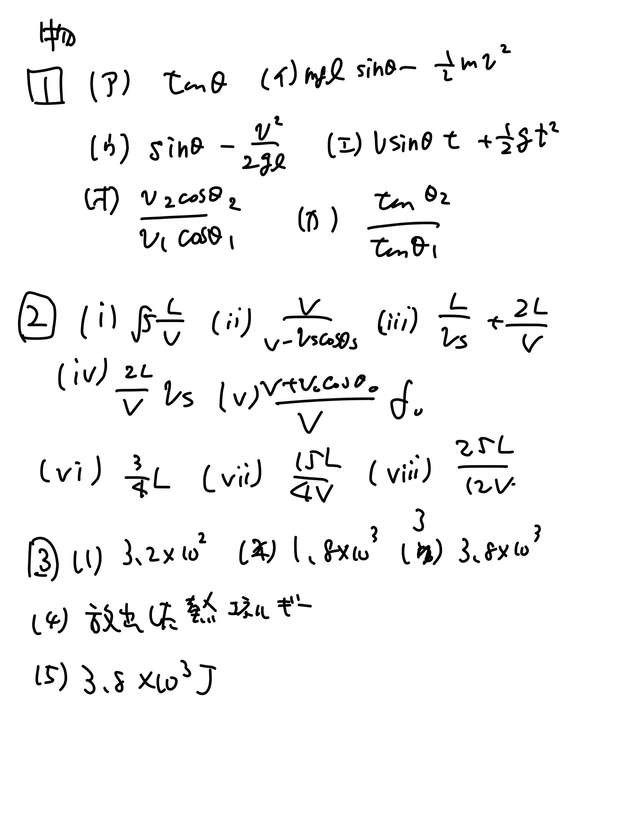 中田
1 (ア) tanθ (イ) mgl sinθ - 1/2 mv²
(ウ) sinθ - v²/2gl (エ) vsinθ t + 1/2 gt²
(オ) v₂cosθ₂/v₁cosθ₁ (カ) tanθ₂/tanθ₁
2 (i) √5 L/V (ii) V/V-vscosθs (iii) L/vs + 2L/V
(iv) 2L/V vs (v) V+v₀cosθ₀/V f₀
(vi) 3/4 L (vii) 15L/4V (viii) 25L/12V
3 (1) 3.2×10² (2) 1.8×10³ (3) 3.8×10³
(4) 放出した熱エネルギー
(5) 3.8×10³J